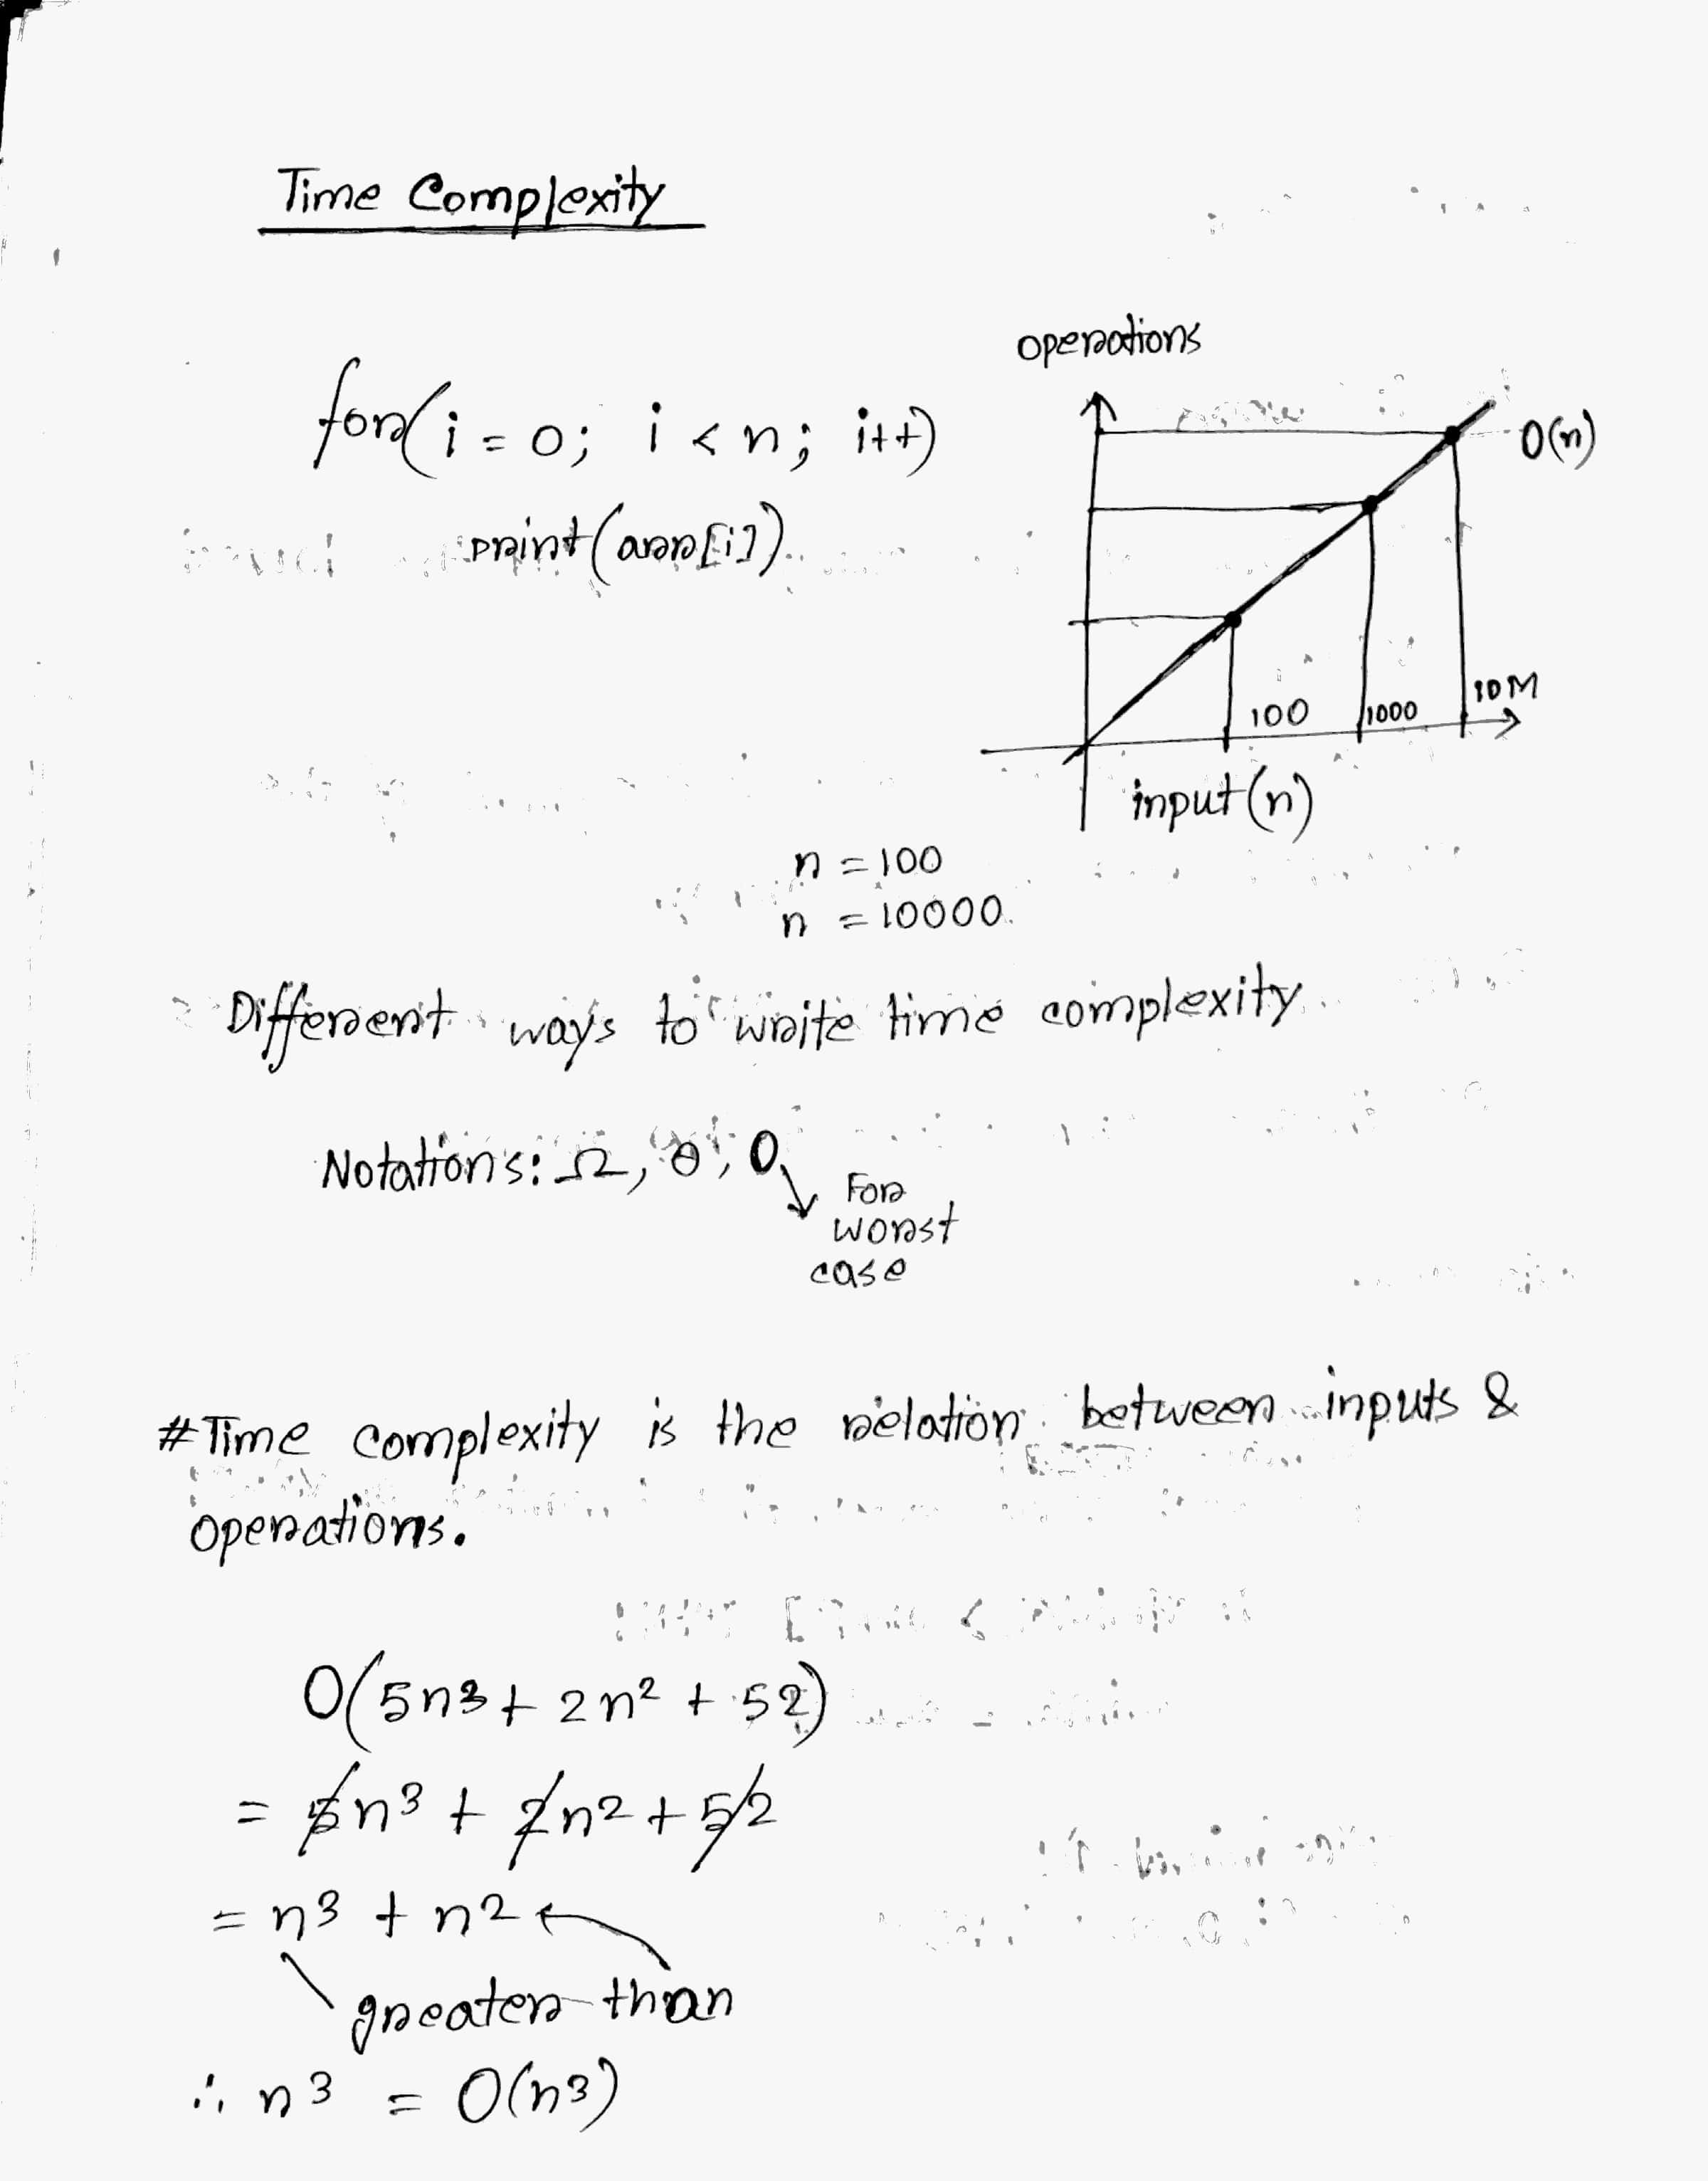 Time Complexity
operations
for(i = 0; i < n; i++)
O(n)
print(arr[i])
100 1000 10M
input(n)
n = 100
n = 10000.
Different ways to write time complexity.
Notations: Ω, θ, O
For
worst
case
#Time complexity is the relation between inputs &
operations.
O(5n3 + 2n2 + 52)
= 5n3 + 2n2 + 52
= n3 + n2
greater than
∴ n3 = O(n3)